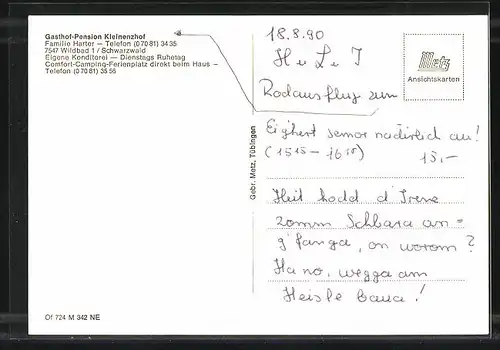 Gasthof-Pension Kleinenzhof
Familie Harter — Telefon (0 70 81) 34 35
7547 Wildbad 1 / Schwarzwald
Eigene Konditorei — Dienstags Ruhetag
Comfort-Camping-Ferienplatz direkt beim Haus —
Telefon (0 70 81) 35 55
18.8.90
H u L u I
Radausflug zum
Metz
Ansichtskarten
Eighert semor nadirlich au!
(15¹⁵ – 16¹⁰) 13,–
Gebr. Metz, Tübingen
Heit hodd d'Irene
zomm Schbara an=
g'fanga, on worom?
Ha no, wegga am
Heisle baua!
Of 724 M 342 NE